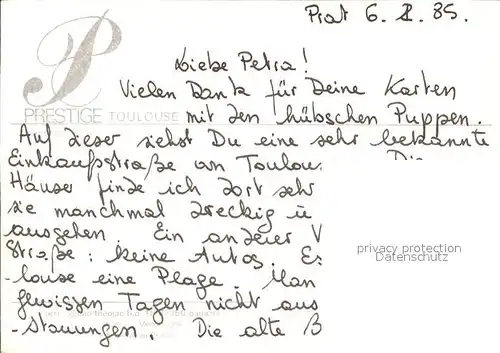 Prat 6. 2. 85.
Liebe Petra!
Vielen Dank für Deine Karten
PRESTIGE TOULOUSE
mit den hübschen Puppen.
Auf dieser siehst Du eine sehr bekannte
Einkaufsstraße an Toulou. Die
Häuser finde ich dort sehr
sie manchmal dreckig u
ausgehen. Ein anderer V
Straße: keine Autos. Es
privacy protection
Datenschutz
louse eine Plage. Man
gewissen Tagen nicht aus
-stauungen. Die alte B